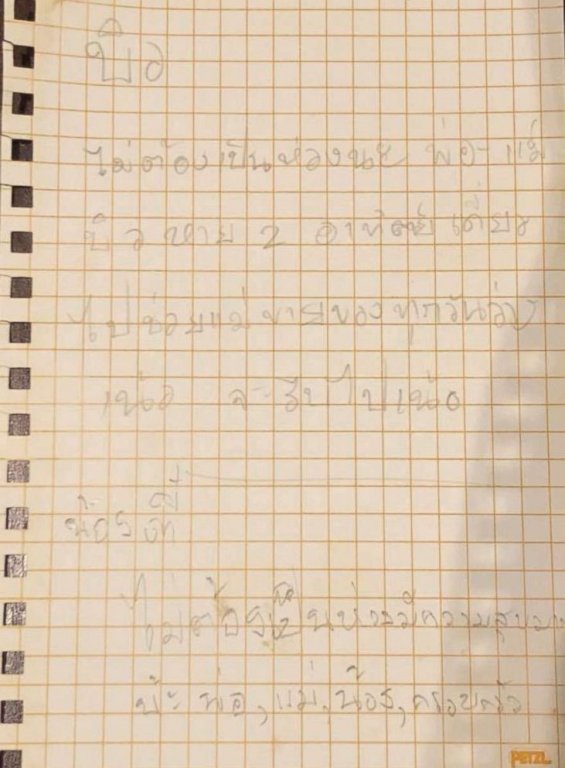 บิว
ไม่ต้องเป็นห่วงนะ พ่อ-แม่
บิว หาย 2 อาทิตย์ เดี๋ยว
ไปช่วยแม่ ขายของ ทุกวัน
เน้อ จะรีบไปเน้อ
น้อง
ไม่ต้องเป็นห่วงมีความสุขมาก
พ่อ, แม่, น้อง, ครอบครัว
PETZL